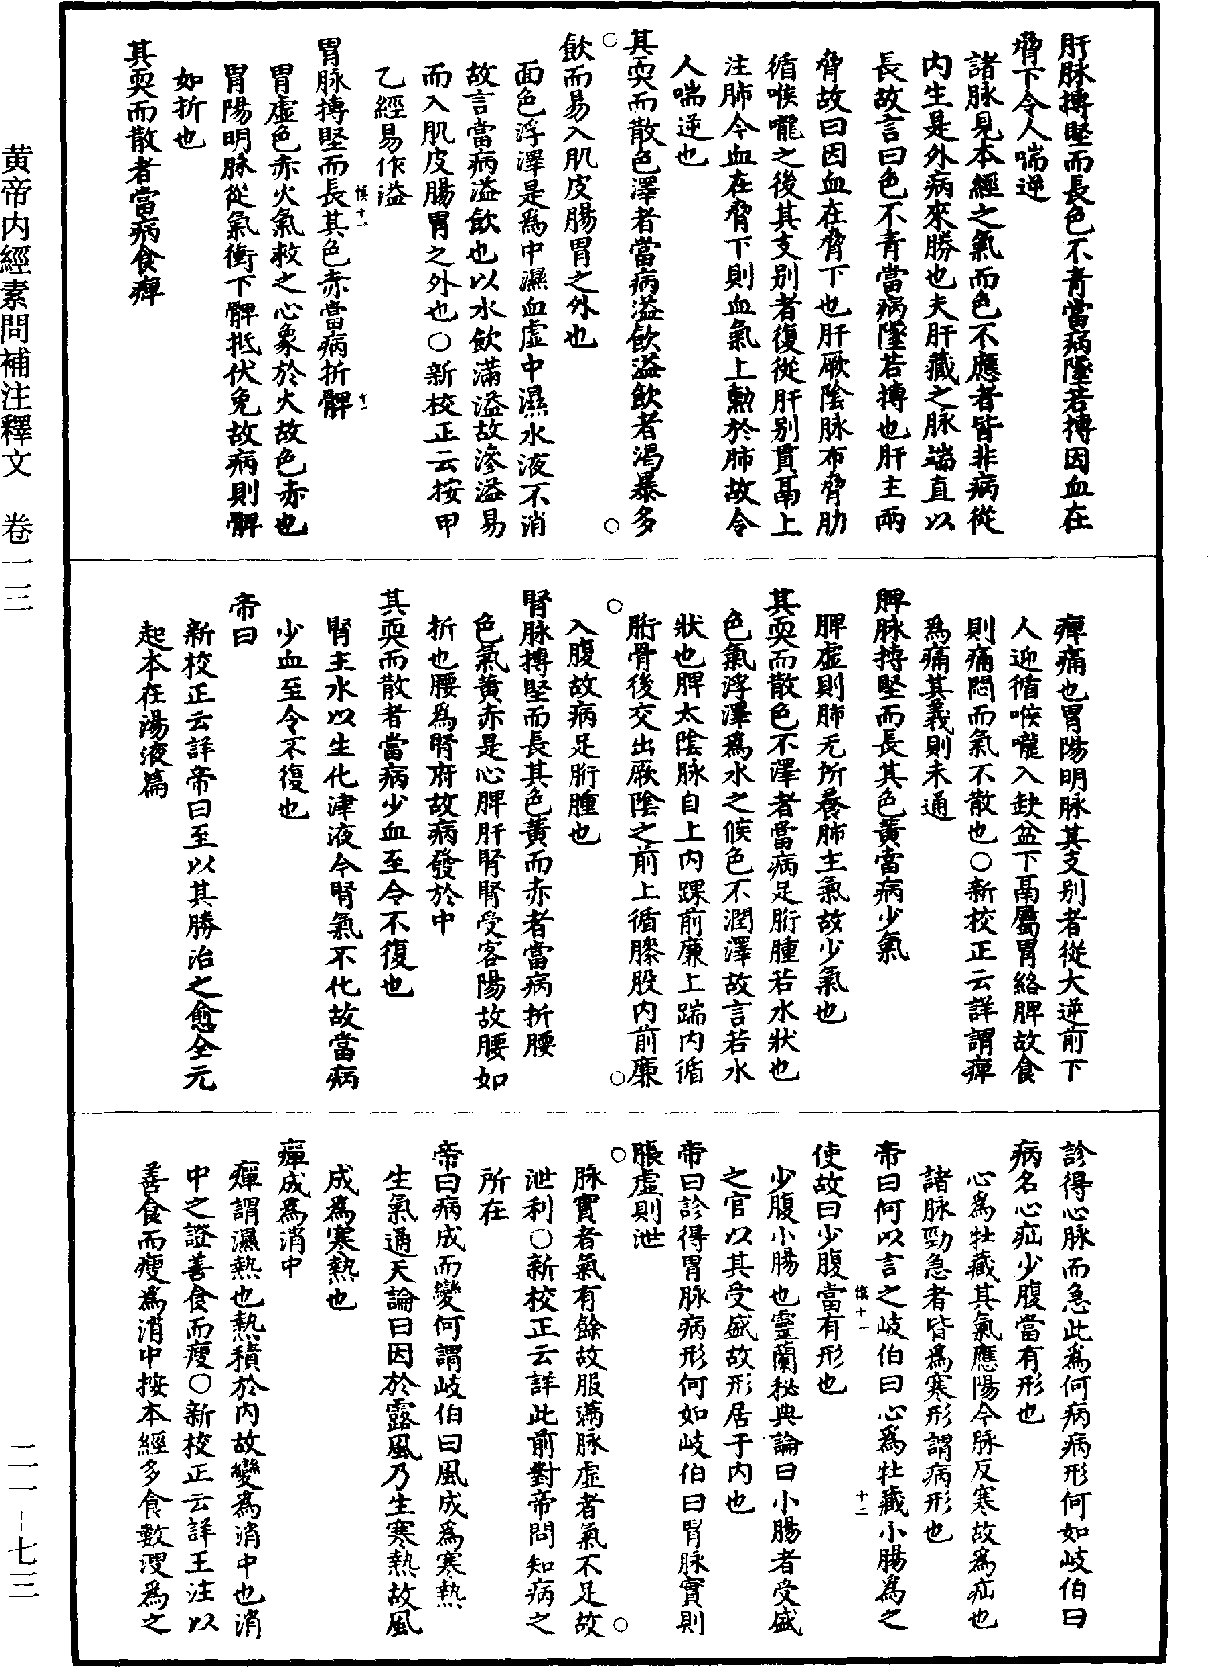 肝脉搏堅而長色不青當病墜若搏因血在
脅下令人喘逆
諸脉見本經之氣而色不應者皆非病從
内生是外病來勝也夫肝藏之脉端直以
長故言曰色不青當病墜若搏也肝主兩
脅故曰因血在脅下也肝厥陰脉布脅肋
循喉嚨之後其支别者復從肝别貫鬲上
注肺今血在脅下則血氣上勳於肺故令
人喘逆也
其耎而散色澤者當病溢飲溢飲者渴暴多
飲而易入肌皮腸胃之外也
面色浮澤是爲中濕血虚中濕水液不消
故言當病溢飲也以水飲滿溢故滲溢易
而入肌皮腸胃之外也○新校正云按甲
乙經易作溢
胃脉搏堅而長其色赤當病折髀
胃虚色赤火氣救之心象於火故色赤也
胃陽明脉從氣衝下髀抵伏兔故病則髀
如折也
其耎而散者當病食痺
痺痛也胃陽明脉其支别者從大迎前下
人迎循喉嚨入缺盆下鬲屬胃絡脾故食
則痛悶而氣不散也○新校正云詳謂痺
爲痛其義則未通
脾脉搏堅而長其色黄當病少氣
脾虚則肺无所養肺主氣故少氣也
其耎而散色不澤者當病足䯒腫若水狀也
色氣浮澤爲水之候色不潤澤故言若水
狀也脾太陰脉自上内踝前廉上踹内循
䯒骨後交出厥陰之前上循膝股内前廉
入腹故病足䯒腫也
腎脉搏堅而長其色黄而赤者當病折腰
色氣黄赤是心脾肝腎腎受客陽故腰如
折也腰爲腎府故病發於中
其耎而散者當病少血至令不復也
腎主水以生化津液今腎氣不化故當病
少血至令不復也
帝曰
新校正云詳帝曰至以其勝治之愈全元
起本在湯液篇
診得心脉而急此爲何病病形何如岐伯曰
病名心疝少腹當有形也
心爲牡藏其氣應陽今脉反寒故爲疝也
諸脉勁急者皆爲寒形謂病形也
帝曰何以言之岐伯曰心爲牡藏小腸爲之
使故曰少腹當有形也
少腹小腸也靈蘭秘典論曰小腸者受盛
之官以其受盛故形居于内也
帝曰診得胃脉病形何如岐伯曰胃脉實則
脹虚則泄
脉實者氣有餘故服滿脉虚者氣不足故
泄利○新校正云詳此前對帝問知病之
所在
帝曰病成而變何謂岐伯曰風成爲寒熱
生氣通天論曰因於露風乃生寒熱故風
成爲寒熱也
癉成爲消中
癉謂濕熱也熱積於内故變爲消中也消
中之證善食而瘦○新校正云詳王注以
善食而瘦爲消中按本經多食數溲爲之
黄帝内經素問補注釋文　卷一三
二一－七三